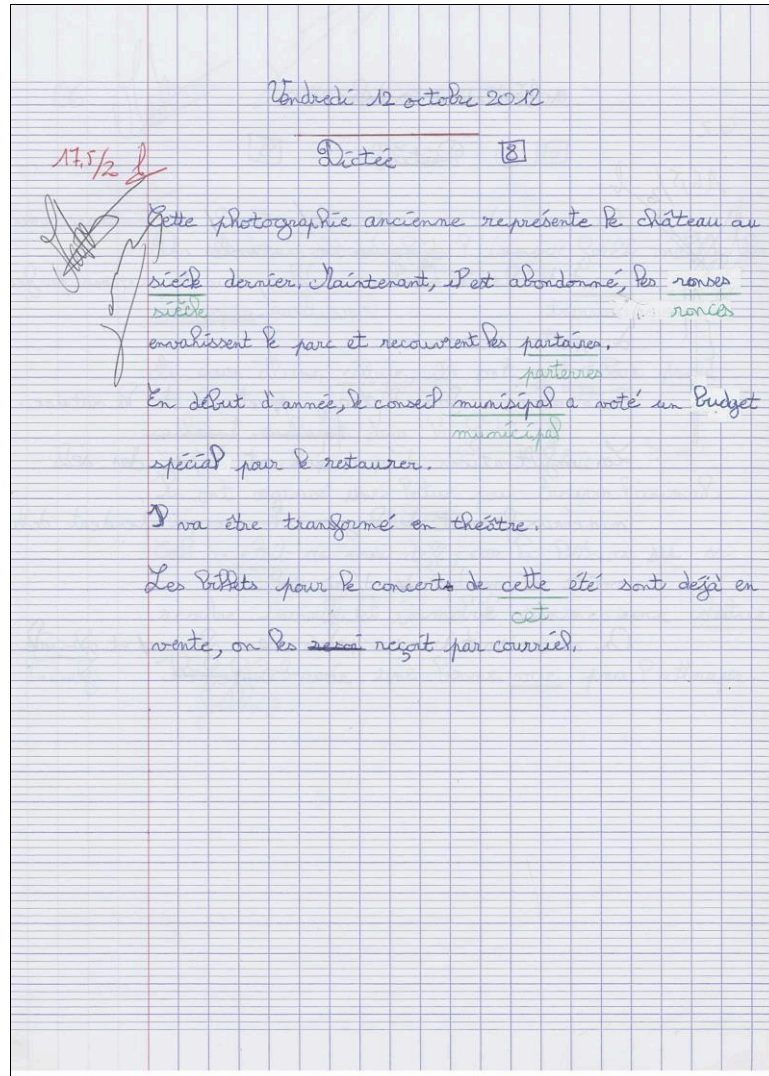 Vendredi 12 octobre 2012
Dictée 8
17,5/2
Cette photographie ancienne représente le château au
siécle dernier. Maintenant, il est abondonné, les ronses
siècle ronces
envahissent le parc et recouvrent les partaires.
parterres
En début d'année, le conseil munisipal a voté un budget
municipal
spécial pour le restaurer.
Il va être transformé en théâtre.
Les billets pour le concert de cette été sont dejà en
cet
vente, on les reçoit par courriel.